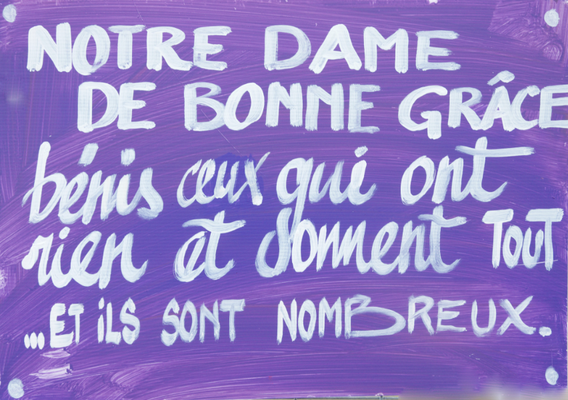 NOTRE DAME
DE BONNE GRÂCE
bénis ceux qui ont
rien et donnent TOUT
...ET iLS SONT NOMBREUX.